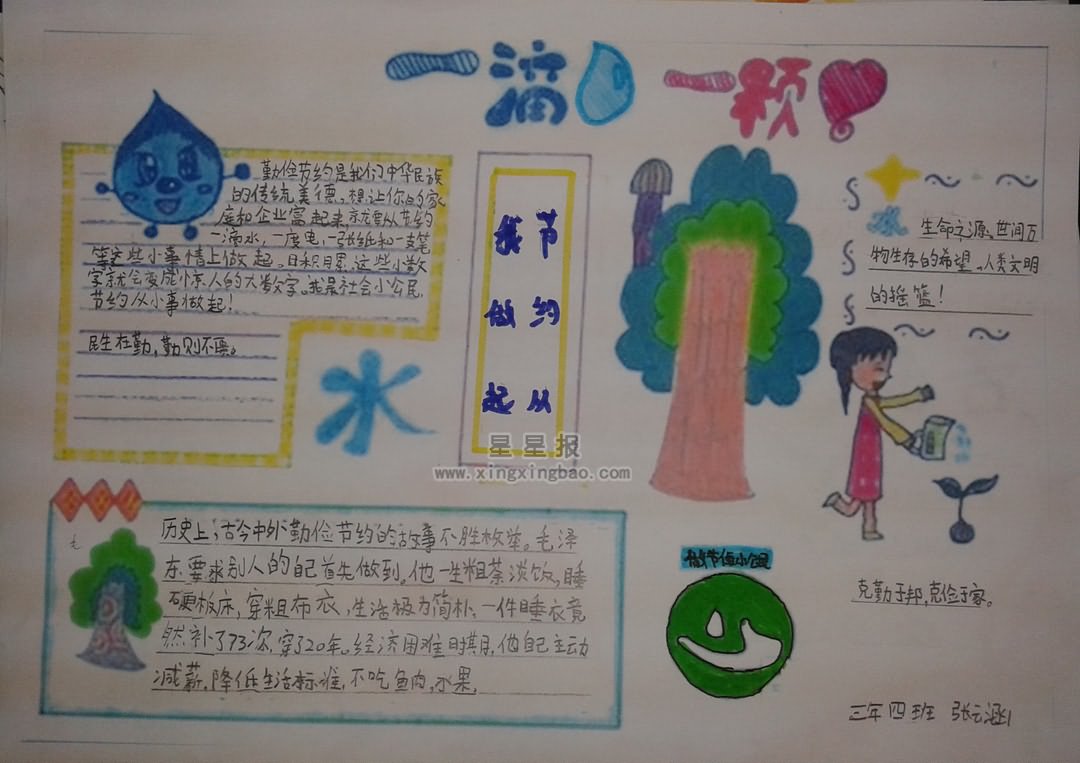 一滴 一颗
勤俭节约是我们中华民族
的传统美德。想让你的家
庭和企业富起来,就要从节约
一滴水,一度电,一张纸和一支笔
等这些小事情上做起。日积月累,这些小数
字就会变成惊人的大数字。我是社会小公民,
节约从小事做起!
民生在勤,勤则不匮。
水
节约从
我做起
水 生命之源、世间万
物生存的希望、人类文明
的摇篮!
星星报
www.xingxingbao.com
历史上,古今中外勤俭节约的故事不胜枚举。毛泽
东要求别人的自己首先做到。他一生粗茶淡饭,睡
硬板床,穿粗布衣,生活极为简朴,一件睡衣竟
然补了73次,穿了20年。经济困难时期,他自己主动
减薪,降低生活标准,不吃鱼肉,水果,
克勤于邦,克俭于家。
三年四班 张云涵